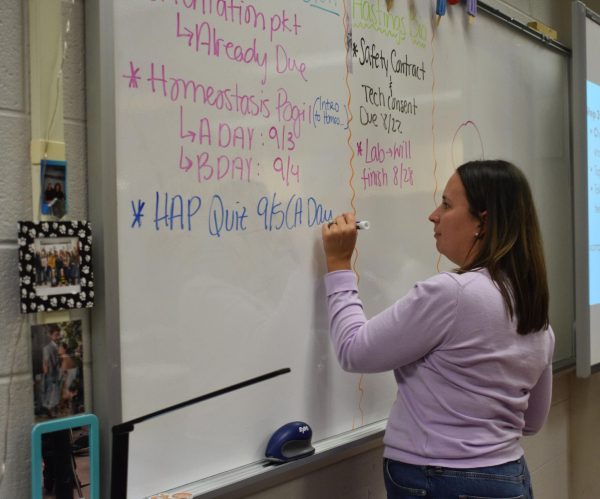 pkt
↳Already Due
* Homeostasis Pogil (Intro
to Homeo...)
↳A DAY: 9/3
↳B DAY: 9/4
* HAP Quiz 9/5 (A Day
Hastings Bio
* Safety Contract
&
Tech Consent
Due 8/27
* Lab → will
finish 8/28
Expo